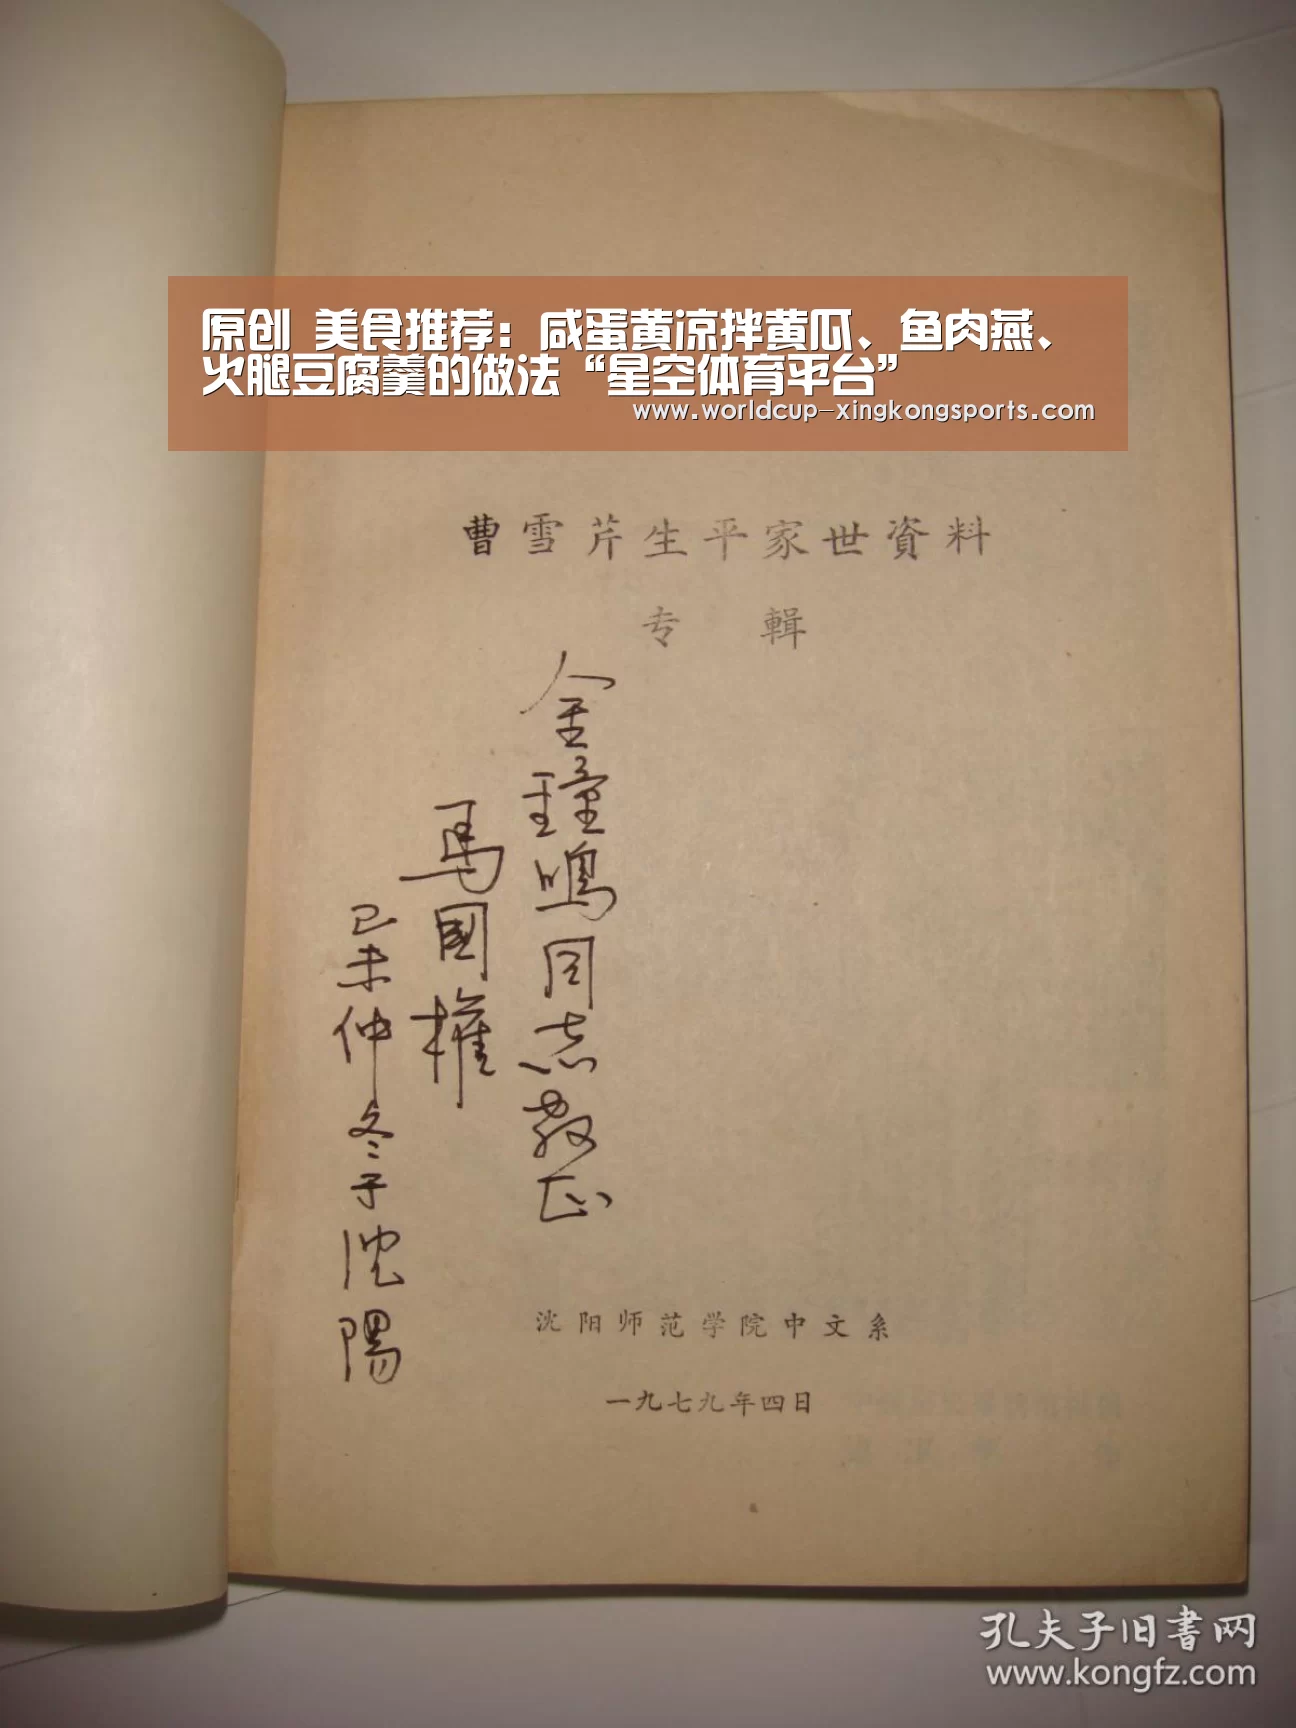 原创 美食推荐：咸蛋黄凉拌黄瓜、鱼肉燕、
火腿豆腐羹的做法“星空体育平台”
www.worldcup-xingkongsports.com
曹雪芹生平家世資料
专輯
金鐘鳴同志教正
馬國權
己未仲冬于沈陽
沈阳师范学院中文系
一九七九年四日
孔夫子旧書网
www.kongfz.com